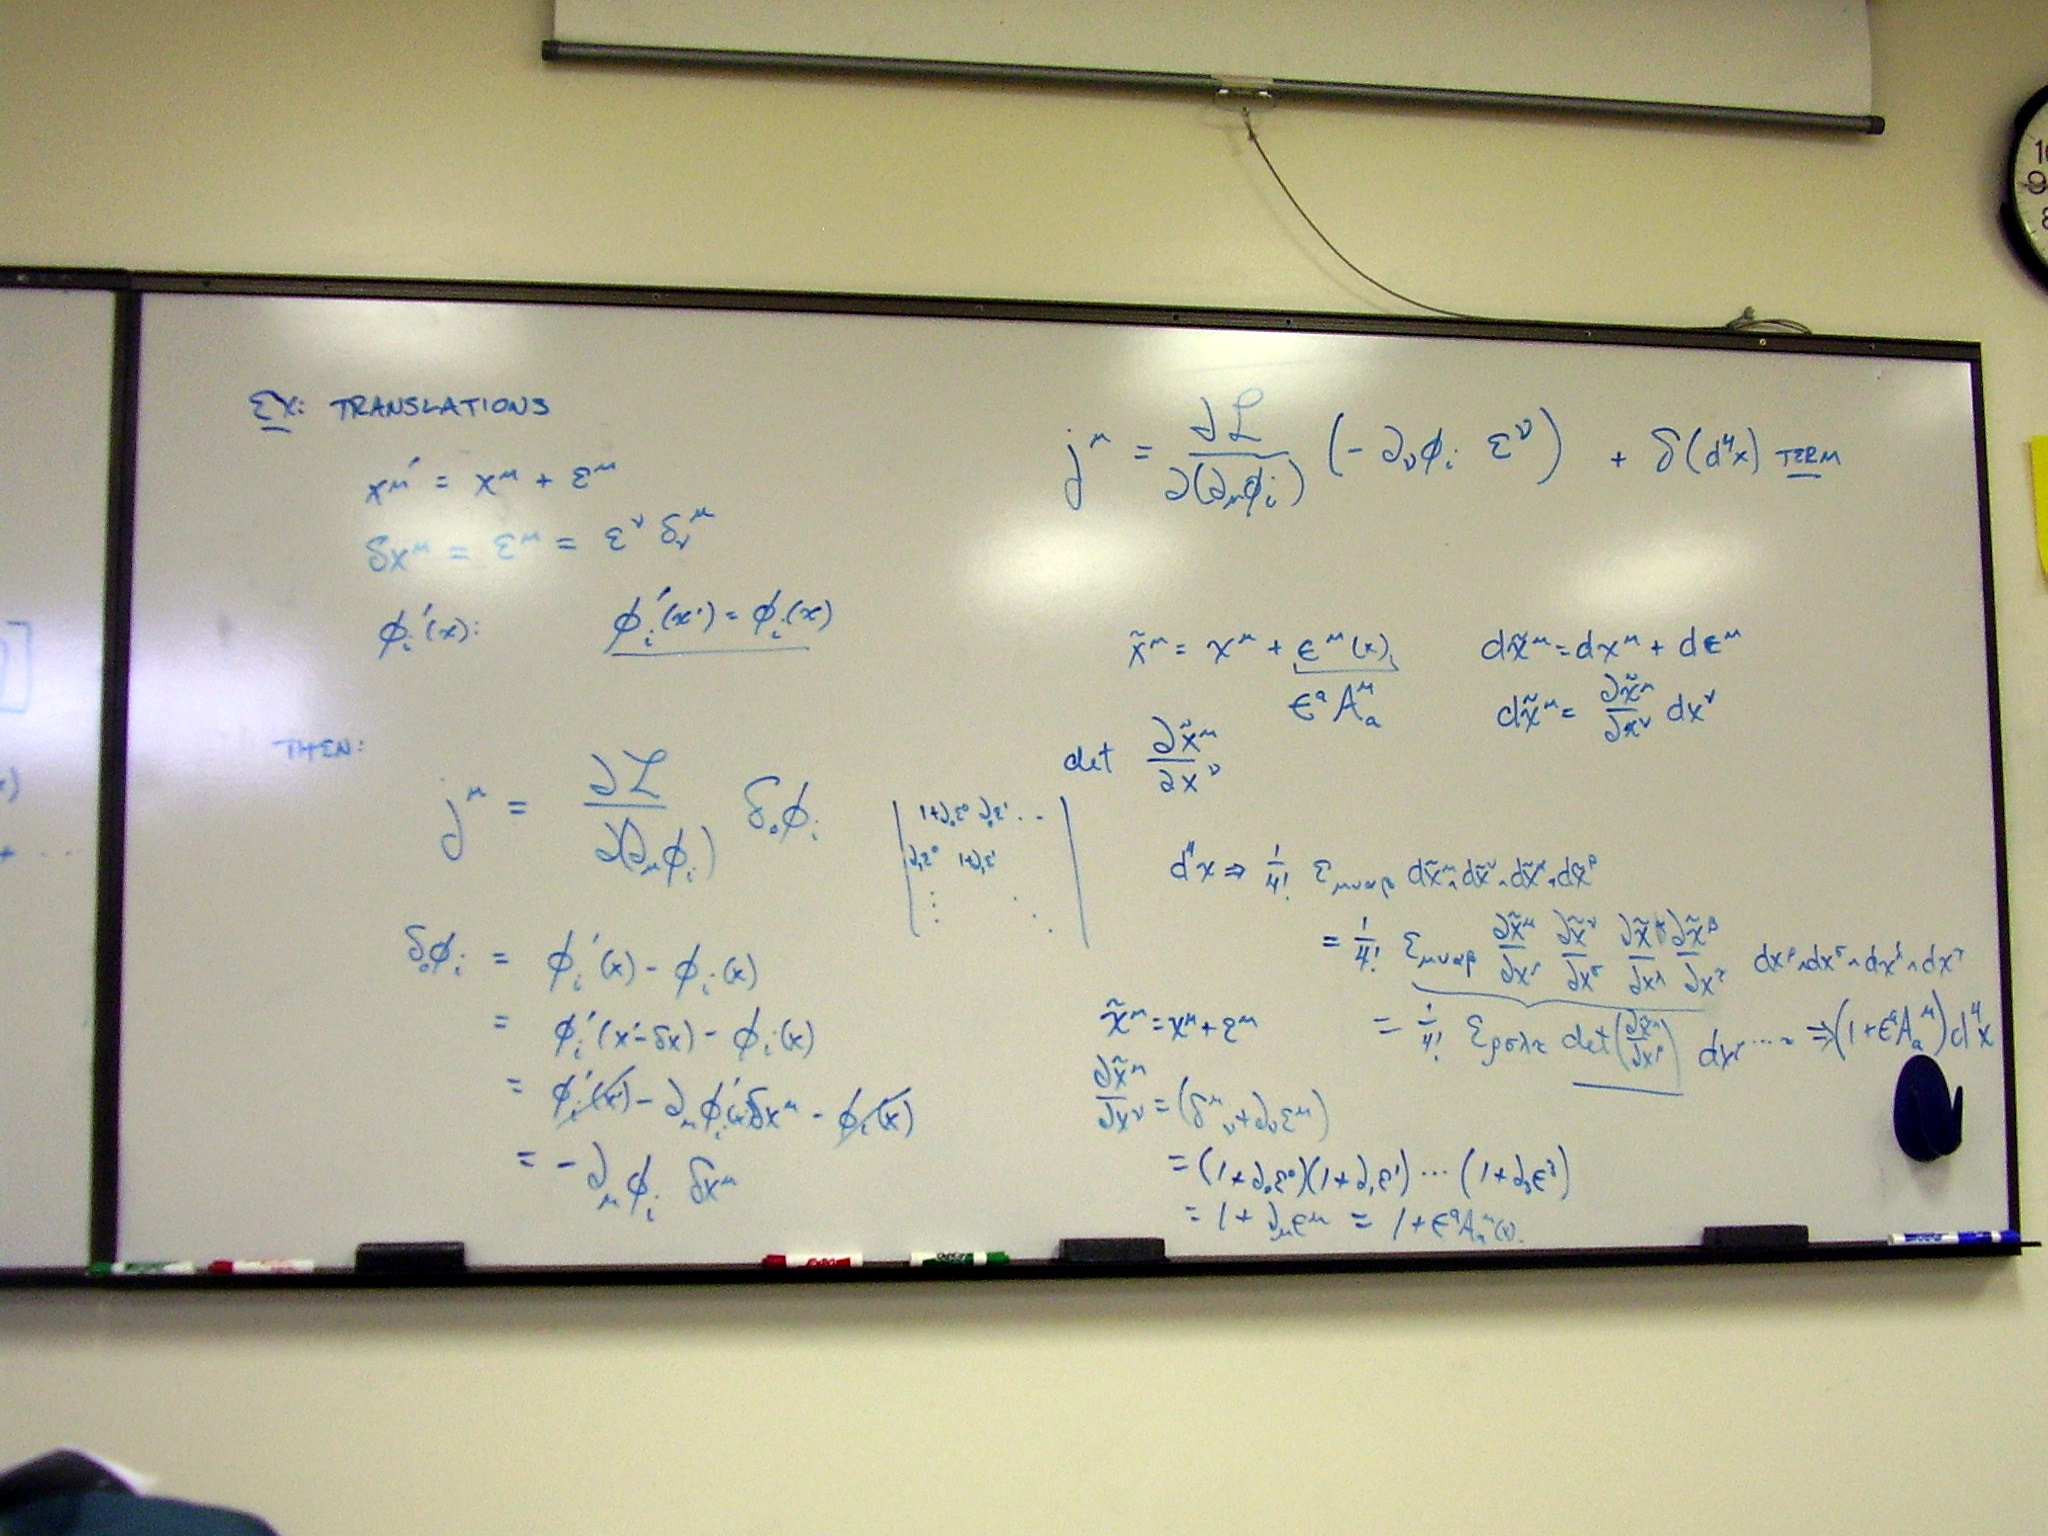 EX: TRANSLATIONS
x^μ' = x^μ + ε^μ
δx^μ = ε^μ = ε^ν δ_ν^μ
φ_i'(x): φ_i'(x') = φ_i(x)
THEN:
j^μ = ∂ℒ/∂(∂_μφ_i) δ_0φ_i
δ_0φ_i = φ_i'(x) - φ_i(x)
= φ_i'(x'-δx) - φ_i(x)
= φ_i'(x') - ∂_μφ_i' δx^μ - φ_i(x)
= -∂_μφ_i δx^μ
j^μ = ∂ℒ/∂(∂_μφ_i) (-∂_νφ_i ε^ν) + δ(d⁴x) TERM
x̃^μ = x^μ + ε^μ(x) dx̃^μ = dx^μ + dε^μ
ε^a A_a^μ dx̃^μ = ∂x̃^μ/∂x^ν dx^ν
det ∂x̃^μ/∂x^ν
| 1+∂_0ε^0 ∂_0ε^1 ...
∂_1ε^0 1+∂_1ε^1
⋮ ⋱ |
d⁴x ⇒ 1/4! ε_μναβ dx̃^μ∧dx̃^ν∧dx̃^α∧dx̃^β
= 1/4! ε_μναβ ∂x̃^μ/∂x^ρ ∂x̃^ν/∂x^σ ∂x̃^α/∂x^λ ∂x̃^β/∂x^τ dx^ρ∧dx^σ∧dx^λ∧dx^τ
= 1/4! ε_ρσλτ det(∂x̃^μ/∂x^ρ) dx^ρ ... ⇒ (1+ε^a A_a^μ) d⁴x
x̃^μ = x^μ + ε^μ
∂x̃^μ/∂x^ν = (δ^μ_ν + ∂_νε^μ)
= (1+∂_0ε^0)(1+∂_1ε^1) ... (1+∂_3ε^3)
= 1 + ∂_με^μ = 1 + ε^a A_a^μ(x)
10
9
8